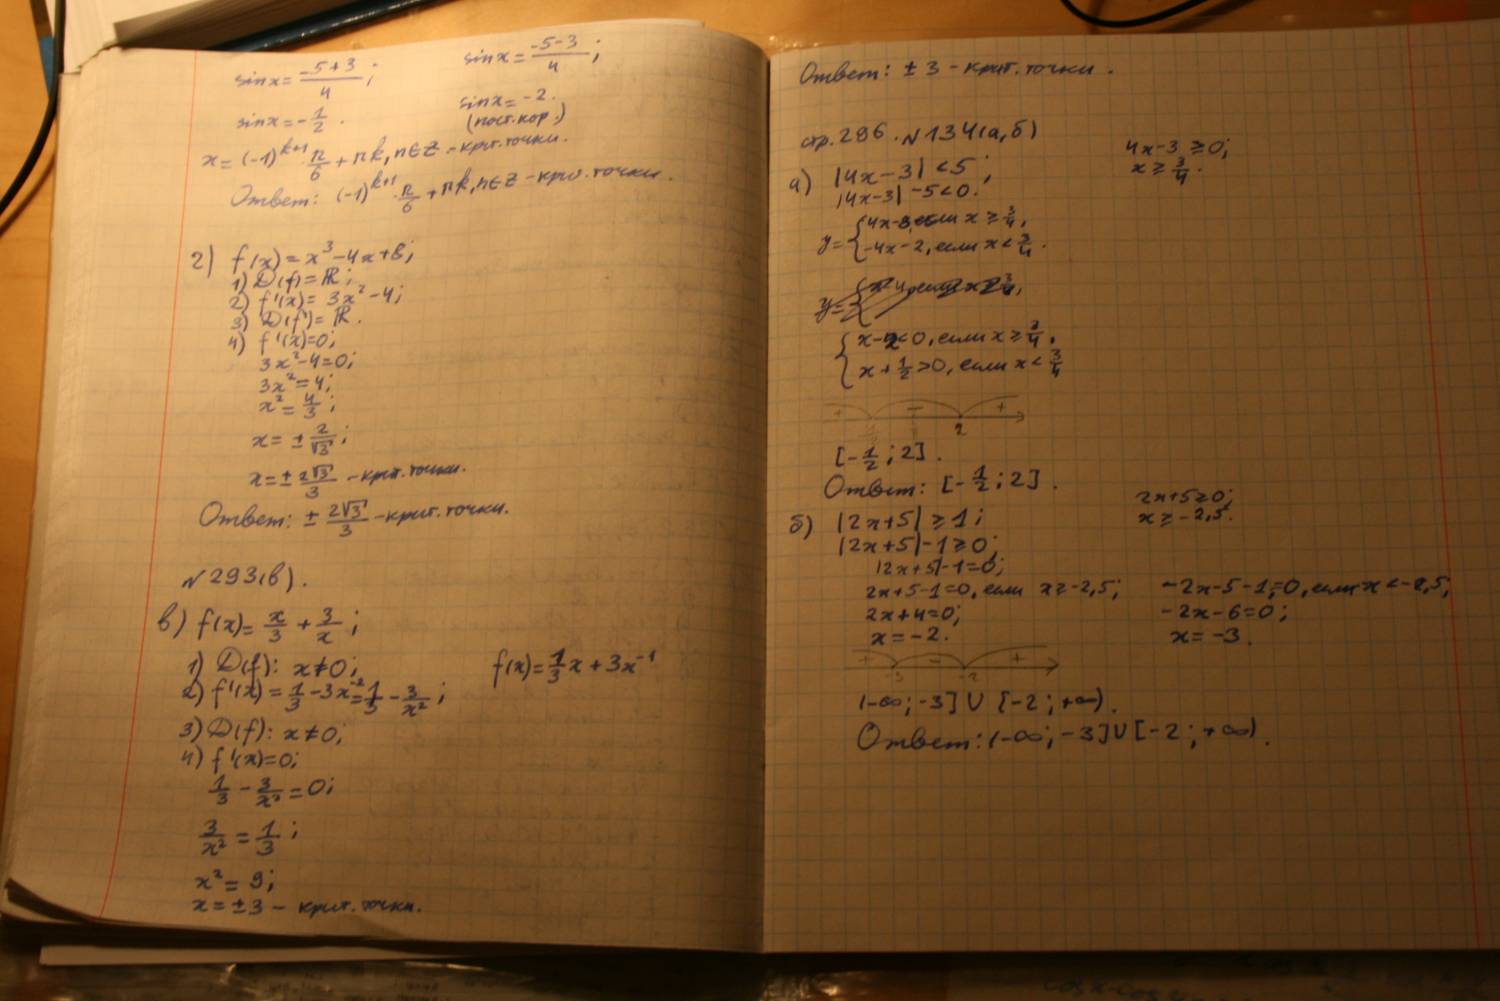 sinx = (-5+3)/4 ;
sinx = (-5-3)/4 ;
sinx = -1/2 .
sinx = -2.
(пост.кор.)
x = (-1)^(k+1) · π/6 + πk, n∈Z - крит.точки.
Ответ: (-1)^(k+1) · π/6 + πk, n∈Z - кри.точки.
г) f(x) = x³ - 4x + 8;
1) D(f) = R;
2) f'(x) = 3x² - 4;
3) D(f') = R.
4) f'(x)=0;
3x² - 4 = 0;
3x² = 4;
x² = 4/3 ;
x = ± 2/√3 ;
x = ± 2√3/3 - крит.точки.
Ответ: ± 2√3/3 - крит.точки.
№293(в).
в) f(x) = x/3 + 3/x ;
1) D(f): x≠0;
f(x) = 1/3 x + 3x⁻¹
2) f'(x) = 1/3 - 3x⁻² = 1/3 - 3/x² ;
3) D(f): x≠0;
4) f'(x)=0;
1/3 - 3/x² = 0;
3/x² = 1/3 ;
x² = 9;
x = ±3 - крит.точки.
Ответ: ± 3 - крит.точки.
стр.286. №134(а,б)
4x-3 ≥ 0;
x ≥ 3/4 .
а) |4x-3| < 5 ;
|4x-3| - 5 < 0.
y = { 4x-8, если x ≥ 3/4,
-4x-2, если x < 3/4 .
{ x-2<0, если x ≥ 3/4,
x + 1/2 > 0, если x < 3/4
+ - +
2
[-1/2 ; 2] .
Ответ: [-1/2 ; 2] .
2x+5≥0;
x ≥ -2,5.
б) |2x+5| ≥ 1 ;
|2x+5| - 1 ≥ 0;
|2x+5| - 1 = 0;
2x+5-1=0, если x ≥ -2,5; -2x-5-1=0, если x < -2,5;
2x+4=0; -2x-6=0;
x = -2. x = -3.
+ - +
-3 -2
(-∞; -3] U [-2 ; +∞).
Ответ: (-∞; -3] U [-2 ; +∞).